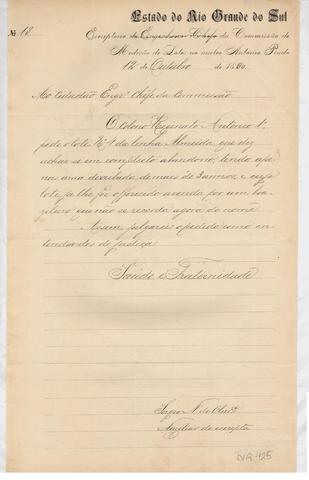 Estado do Rio Grande do Sul
Nº 18 Escriptorio da Commissão de
Medição de Lotes no nucleo Antonio Prado
12 de Outubro de 1890.
Ao Cidadão Engrº Chefe da Commissão
O colono Antonio
pede o lote Nº 9 da linha Almeida, que diz
achar-se em completo abandono, tendo ape-
nas uma de mais de 3 annos, e cujo
lote ja lhe foi offerecido a venda por um bra-
zileiro que não se recorda agora do nome.
Assim, julgareis o pedido como en-
tenderdes de justiça
Saude e Fraternidade
Auxiliar de escripta
DIR 425